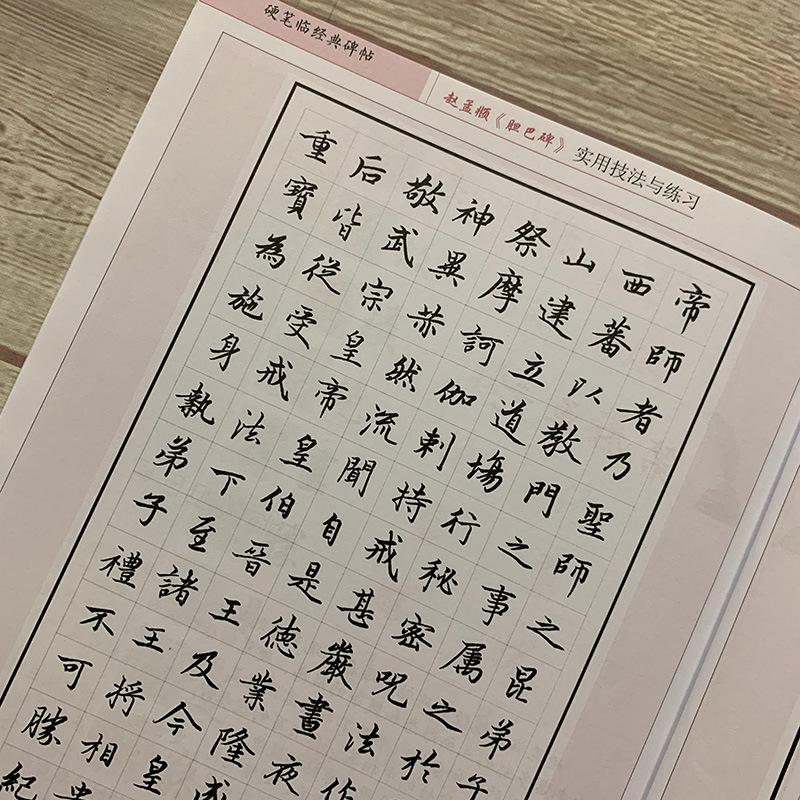 硬笔临经典碑帖
赵孟頫《胆巴碑》实用技法与练习
帝師者乃聖師之昆弟子
西蕃以教門之事属之於
山建立道場行秘密呪法作
祭摩訶伽剌持戒甚嚴晝夜
神異赫然流聞自是德業隆
敬武宗皇帝皇伯晉王及今皇
后皆從受戒法下至諸王將相
重寶為施身執弟子禮不可勝紀